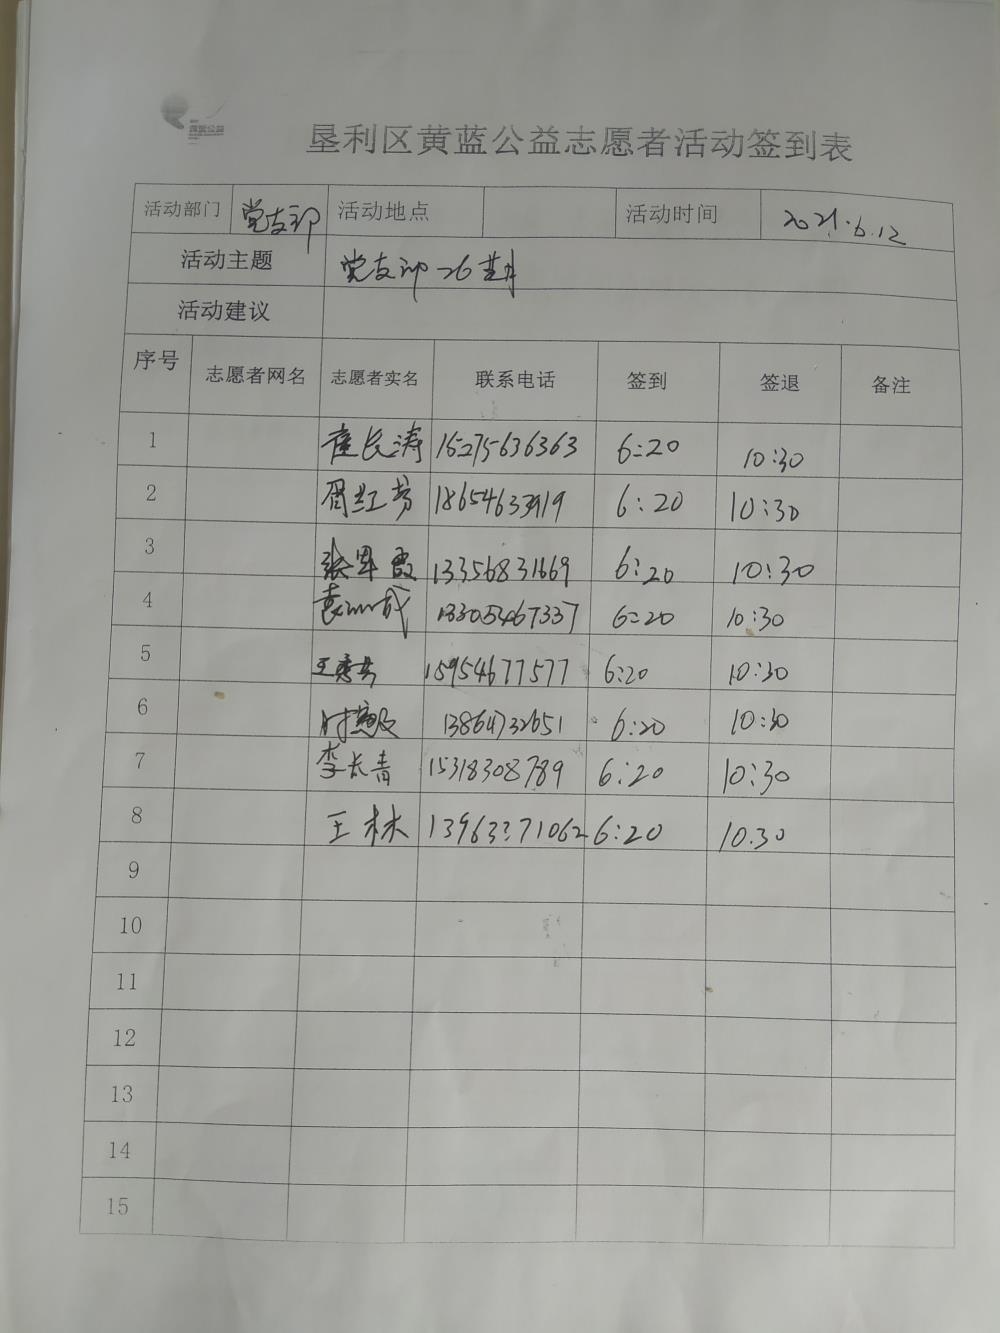 黄蓝公益
垦利区黄蓝公益志愿者活动签到表
活动部门 党支部 活动地点 活动时间 2021.6.12
活动主题 党支部
活动建议
序号 志愿者网名 志愿者实名 联系电话 签到 签退 备注
1 崔长涛 15275636363 6:20 10:30
2 周红芳 18654633919 6:20 10:30
3 张军霞 13356831669 6:20 10:30
4 13305467337 6:20 10:30
5 15954677577 6:20 10:30
6 13864732651 6:20 10:30
7 李长青 15318308789 6:20 10:30
8 王林 13963371062 6:20 10.30
9
10
11
12
13
14
15